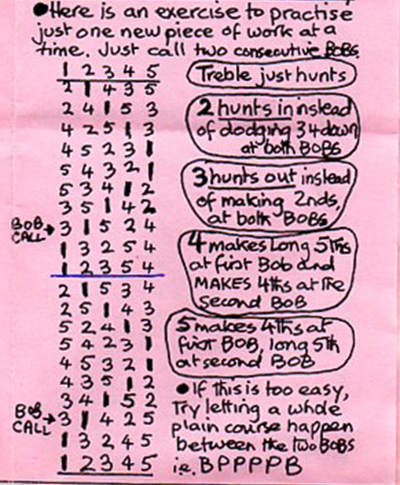 •Here is an exercise to practise
just one new piece of work at a
time. Just call two consecutive BOBS.
1 2 3 4 5
2 1 4 3 5
2 4 1 5 3
4 2 5 1 3
4 5 2 3 1
5 4 3 2 1
5 3 4 1 2
3 5 1 4 2
BOB
CALL → 3 1 5 2 4
1 3 2 5 4
1 2 3 5 4
2 1 5 3 4
2 5 1 4 3
5 2 4 1 3
5 4 2 3 1
4 5 3 2 1
4 3 5 1 2
3 4 1 5 2
BOB
CALL → 3 1 4 2 5
1 3 2 4 5
1 2 3 4 5
Treble just hunts
2 hunts in instead
of dodging 34down
at both BOBS
3 hunts out instead
of making 2nds,
at both BOBS
4 makes Long 5ths
at first Bob and
MAKES 4ths at the
second BOB
5 makes 4ths at
first BOB, long 5th
at second BOB
•If this is too easy,
Try letting a whole
plain course happen
between the two BOBS
i.e. BPPPPB